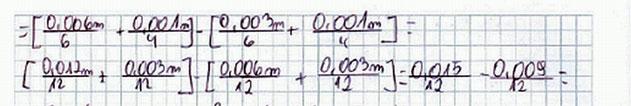 =[0,006m/6 + 0,001m/4] - [0,003m/6 + 0,001m/4] =
[0,012m/12 + 0,003m/12] - [0,006m/12 + 0,003m/12] = 0,015/12 - 0,009/12 =